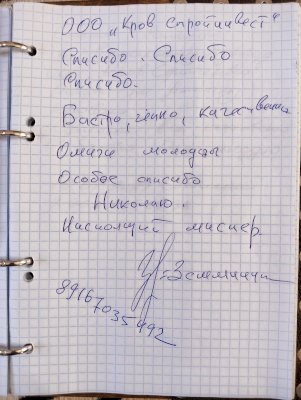 ООО „Кров стройинвест"
Спасибо. Спасибо
Спасибо.
Быстро, чётко, качественно
молодцы
Особое спасибо
Николаю.
Настоящий мастер
89167035492